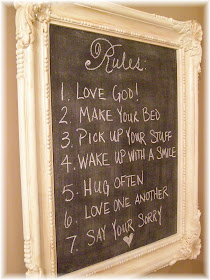 Rules:
1. LOVE GOD!
2. MAKE YOUR BED
3. PICK UP YOUR STUFF
4. WAKE UP WITH A SMILE
5. HUG OFTEN
6. LOVE ONE ANOTHER
7. SAY YOUR SORRY